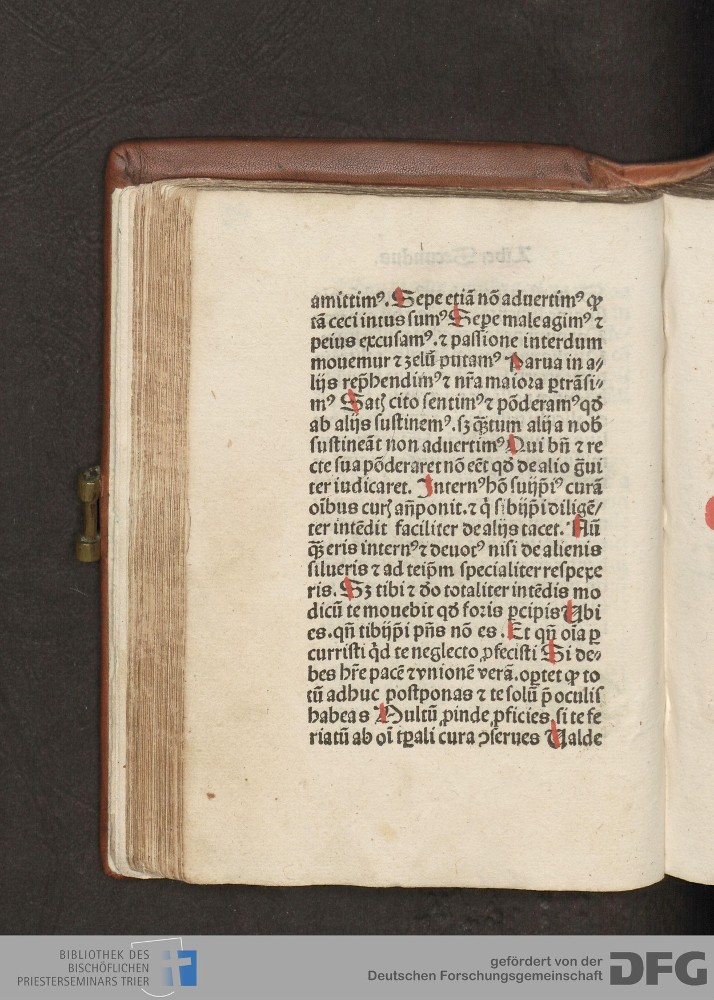 amittimꝰ. Sepe etiā nō aduertimꝰ ꝙ
tā ceci intus sumꝰ Sepe male agimꝰ ⁊
peius excusamꝰ. ⁊ passione interdum
mouemur ⁊ zelū putamꝰ Parua in a⸗
lijs rep̄hendimꝰ ⁊ nr̄a maiora ꝑtrāsi⸗
mꝰ Satꝭ cito sentimꝰ ⁊ pōderamꝰ qđ
ab alijs sustinemꝰ. sꝫ q̄ꝫtum alij a nob̄
sustineāt non aduertimꝰ Qui bn̄ ⁊ re
cte sua pōderaret nō eēt qđ de alio ḡui
ter iudicaret. Internꝰ hō suijp̄iꝰ curā
oībus curꝭ an̄ponit. ⁊ q̇ sibijp̄i diligē⸗
ter intēdit faciliter de alijs tacet. Nū
q̄ꝫ eris internꝰ ⁊ deuotꝰ nisi de alienis
silueris ⁊ ad teip̄m specialiter respexe
ris. Sꝫ tibi ⁊ đo totaliter intēdis mo
dicū te mouebit qđ foris ꝑcipis Ubi
es. qn̄ tibijp̄i p̄ns nō es. Et qn̄ oīa ꝑ
curristi q̇d te neglecto ꝓfecisti Si de⸗
bes hr̄e pacē ⁊ vnionē verā. oꝑtet ꝙ to
tū adhuc postponas ⁊ te solū p̄ oculis
habeas Multū ꝓinde ꝓficies, si te fe
riatū ab oī tꝑali cura ↄserues Ualde
BIBLIOTHEK DES
BISCHÖFLICHEN
PRIESTERSEMINARS TRIER
gefördert von der
Deutschen Forschungsgemeinschaft
DFG